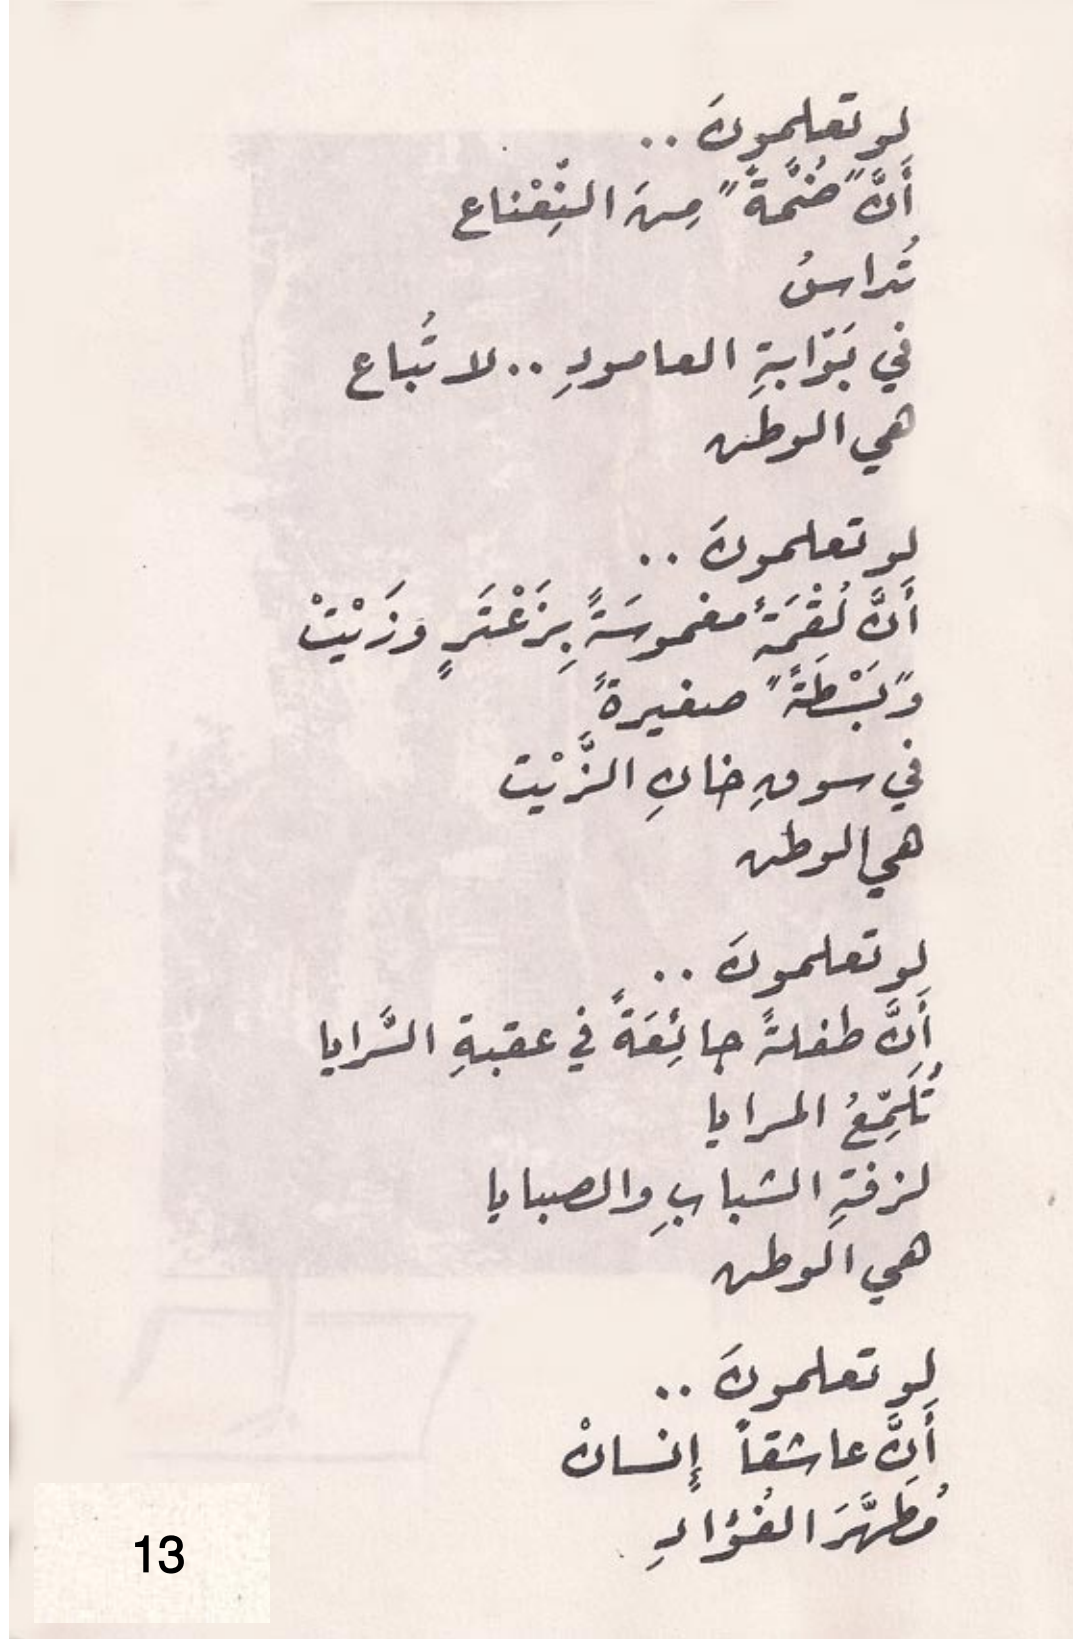 لو تعلمونَ ..
أَنَّ "ضُمَّةً" مِنَ النِّعْناع
تُداسُ
في بَوّابةِ العامودِ .. لا تُباع
هي الوطن
لو تعلمونَ ..
أَنَّ لُقْمَةً مغموسَةً بِزَعْتَرٍ وزَيْتْ
و"بَسْطَةً" صغيرةً
في سوقِ خانِ الزَّيْت
هي الوطن
لو تعلمونَ ..
أَنَّ طفلةً جائِعَةً في عقبةِ السَّرايا
تُلَمِّعُ المرايا
لزفةِ الشبابِ والصبايا
هي الوطن
لو تعلمونَ ..
أَنَّ عاشقاً إنسانْ
مُطَهَّرَ الفُؤادِ
13